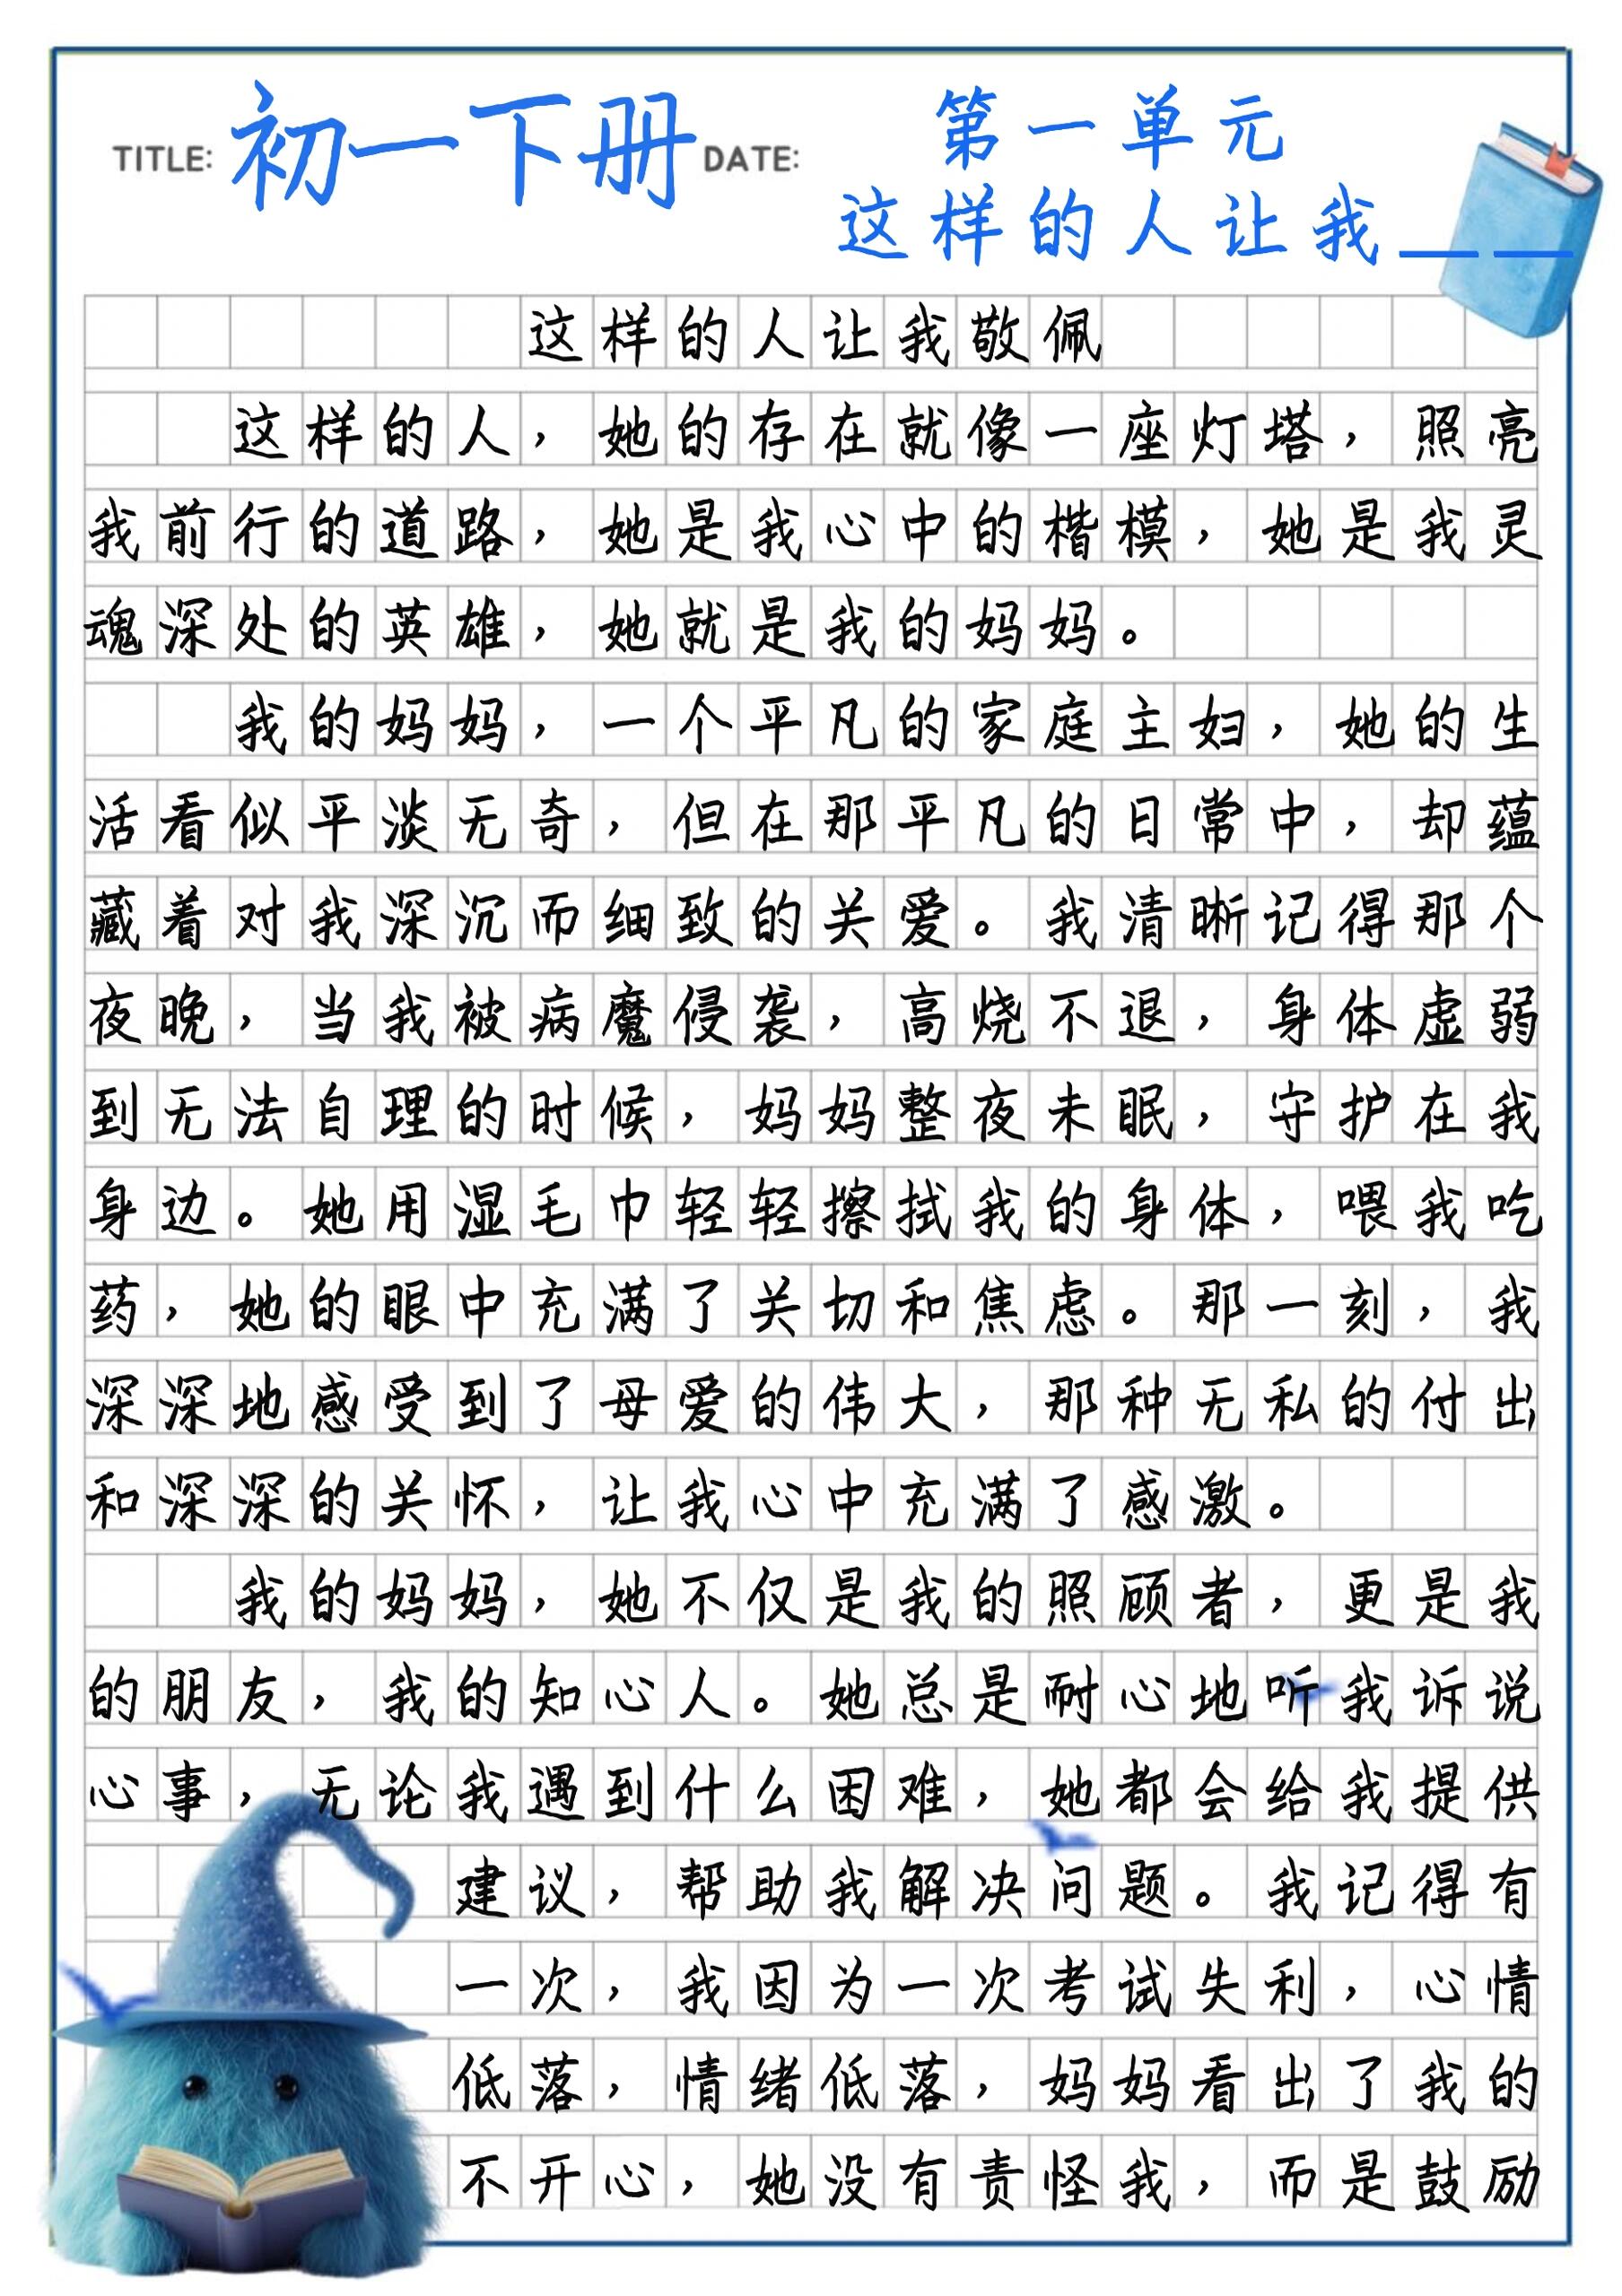 TITLE: 初一下册 DATE: 第一单元
这样的人让我__ __
这样的人让我敬佩
这样的人，她的存在就像一座灯塔，照亮
我前行的道路，她是我心中的楷模，她是我灵
魂深处的英雄，她就是我的妈妈。
我的妈妈，一个平凡的家庭主妇，她的生
活看似平淡无奇，但在那平凡的日常中，却蕴
藏着对我深沉而细致的关爱。我清晰记得那个
夜晚，当我被病魔侵袭，高烧不退，身体虚弱
到无法自理的时候，妈妈整夜未眠，守护在我
身边。她用湿毛巾轻轻擦拭我的身体，喂我吃
药，她的眼中充满了关切和焦虑。那一刻，我
深深地感受到了母爱的伟大，那种无私的付出
和深深的关怀，让我心中充满了感激。
我的妈妈，她不仅是我的照顾者，更是我
的朋友，我的知心人。她总是耐心地听我诉说
心事，无论我遇到什么困难，她都会给我提供
建议，帮助我解决问题。我记得有
一次，我因为一次考试失利，心情
低落，情绪低落，妈妈看出了我的
不开心，她没有责怪我，而是鼓励